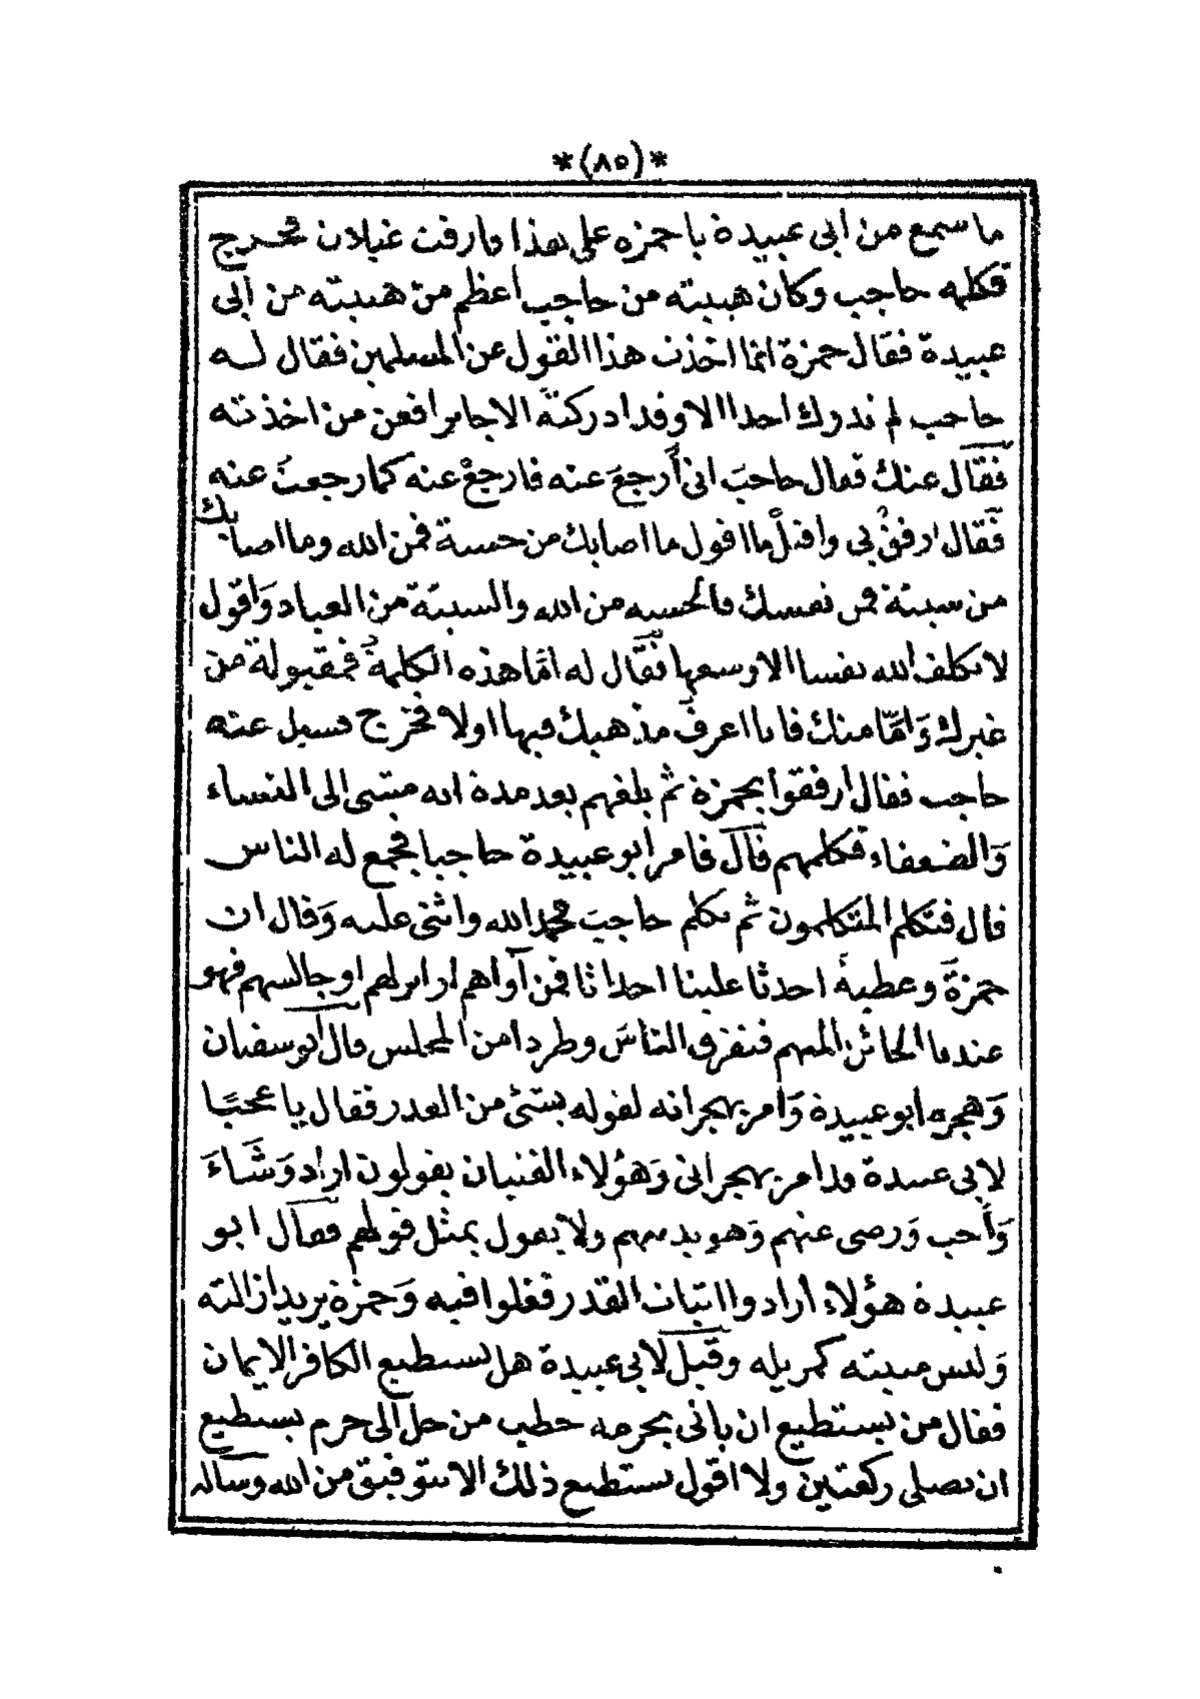 *(٨٥)*
ما سمع من ابي عبيدة يا حمزه على هذا فارقت غيلان فخرج
فكلمه حاجب وكان هيبته من حاجب اعظم من هيبته من ابي
عبيدة فقال حمزة انما اخذت هذا القول عن المسلمين فقال له
حاجب لم تدرك احدا الا وقد ادركته الا جابرا فعن من اخذته
فقال عنك فقال حاجب اني أرجع عنه فارجع عنه كما رجعت عنه
فقال ارفق بي واقبل ما اقول ما اصابك من حسنة فمن الله وما اصابك
من سيئة فمن نفسك فالحسنه من الله والسيئة من العباد وَاقول
لا يكلف الله نفسا الا وسعها فقال له امّا هذه الكلمة فمقبولة من
غيرك وَامّا منك فانا اعرف مذهبك فيها اولا فخرج فسيل عنه
حاجب فقال ارفقوا بحمزة ثم بلغهم بعد مدة انه مشى الى النساء
وَالضعفاء فكلمهم قال فامر ابو عبيدة حاجبا فجمع له الناس
قال فتكلم المتكلمون ثم تكلم حاجب فحمد الله واثنى عليه وَقال ان
حمزة وعطية احدثا علينا احداثا فمن آواهم او انزلهم او جالسهم فهو
عندنا الخائن المتهم فتفرق الناس وطردا من المجلس قال ابو سفيان
وَهجره ابو عبيدة وَامر بهجرانه لقوله بشئ من القدر فقال يا عجبًا
لابي عبيدة قد امر بهجراني وَهؤلاء الفتيان يقولون اراد وَشَاءَ
وَأحب وَرضي عنهم وَهو يدنيهم ولا يقول بمثل قولهم فقال ابو
عبيدة هؤلاء أرادوا اثبات القدر فغلوا فيه وَحمزة يريد ازالته
وَليس مثبته كمزيله وقيل لابي عبيدة هل يستطيع الكافر الايمان
فقال من يستطيع ان ياتي بحزمه حطب من حل الى حرم يستطيع
ان يصلي ركعتين ولا اقول يستطيع ذلك الا بتوفيق من الله وساله